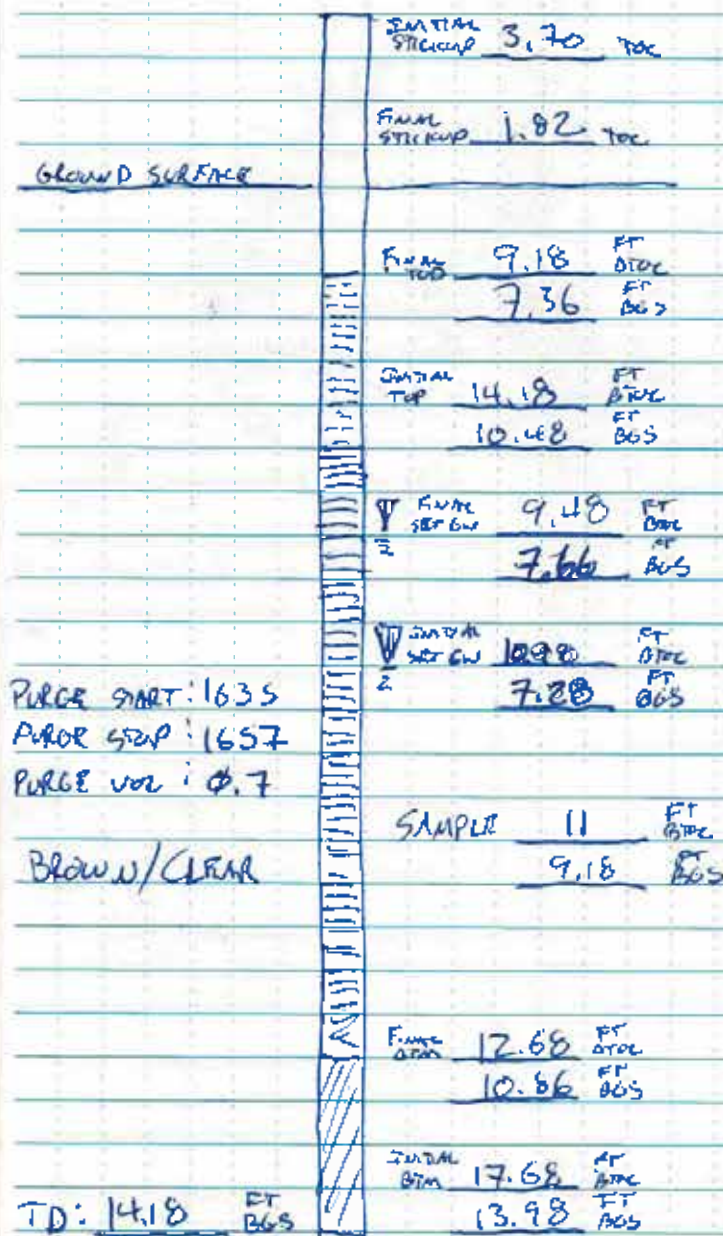 INITIAL
STICKUP 3.70 TOC
FINAL
STICKUP 1.82 TOC
GROUND SURFACE
FINAL TOP 9.18 FT BTOC
7.36 FT BGS
INITIAL TOP 14.18 FT BTOC
10.48 FT BGS
FINAL SET GW 9.48 FT BTOC
7.66 FT BGS
INITIAL SET GW 10.98 FT BTOC
7.28 FT BGS
PURGE START: 1635
PURGE STOP: 1657
PURGE VOL: 0.7
SAMPLE 11 FT BTOC
9.18 FT BGS
BROWN/CLEAR
FINAL BTM 12.68 FT BTOC
10.86 FT BGS
INITIAL BTM 17.68 FT BTOC
13.98 FT BGS
TD: 14.18 FT BGS